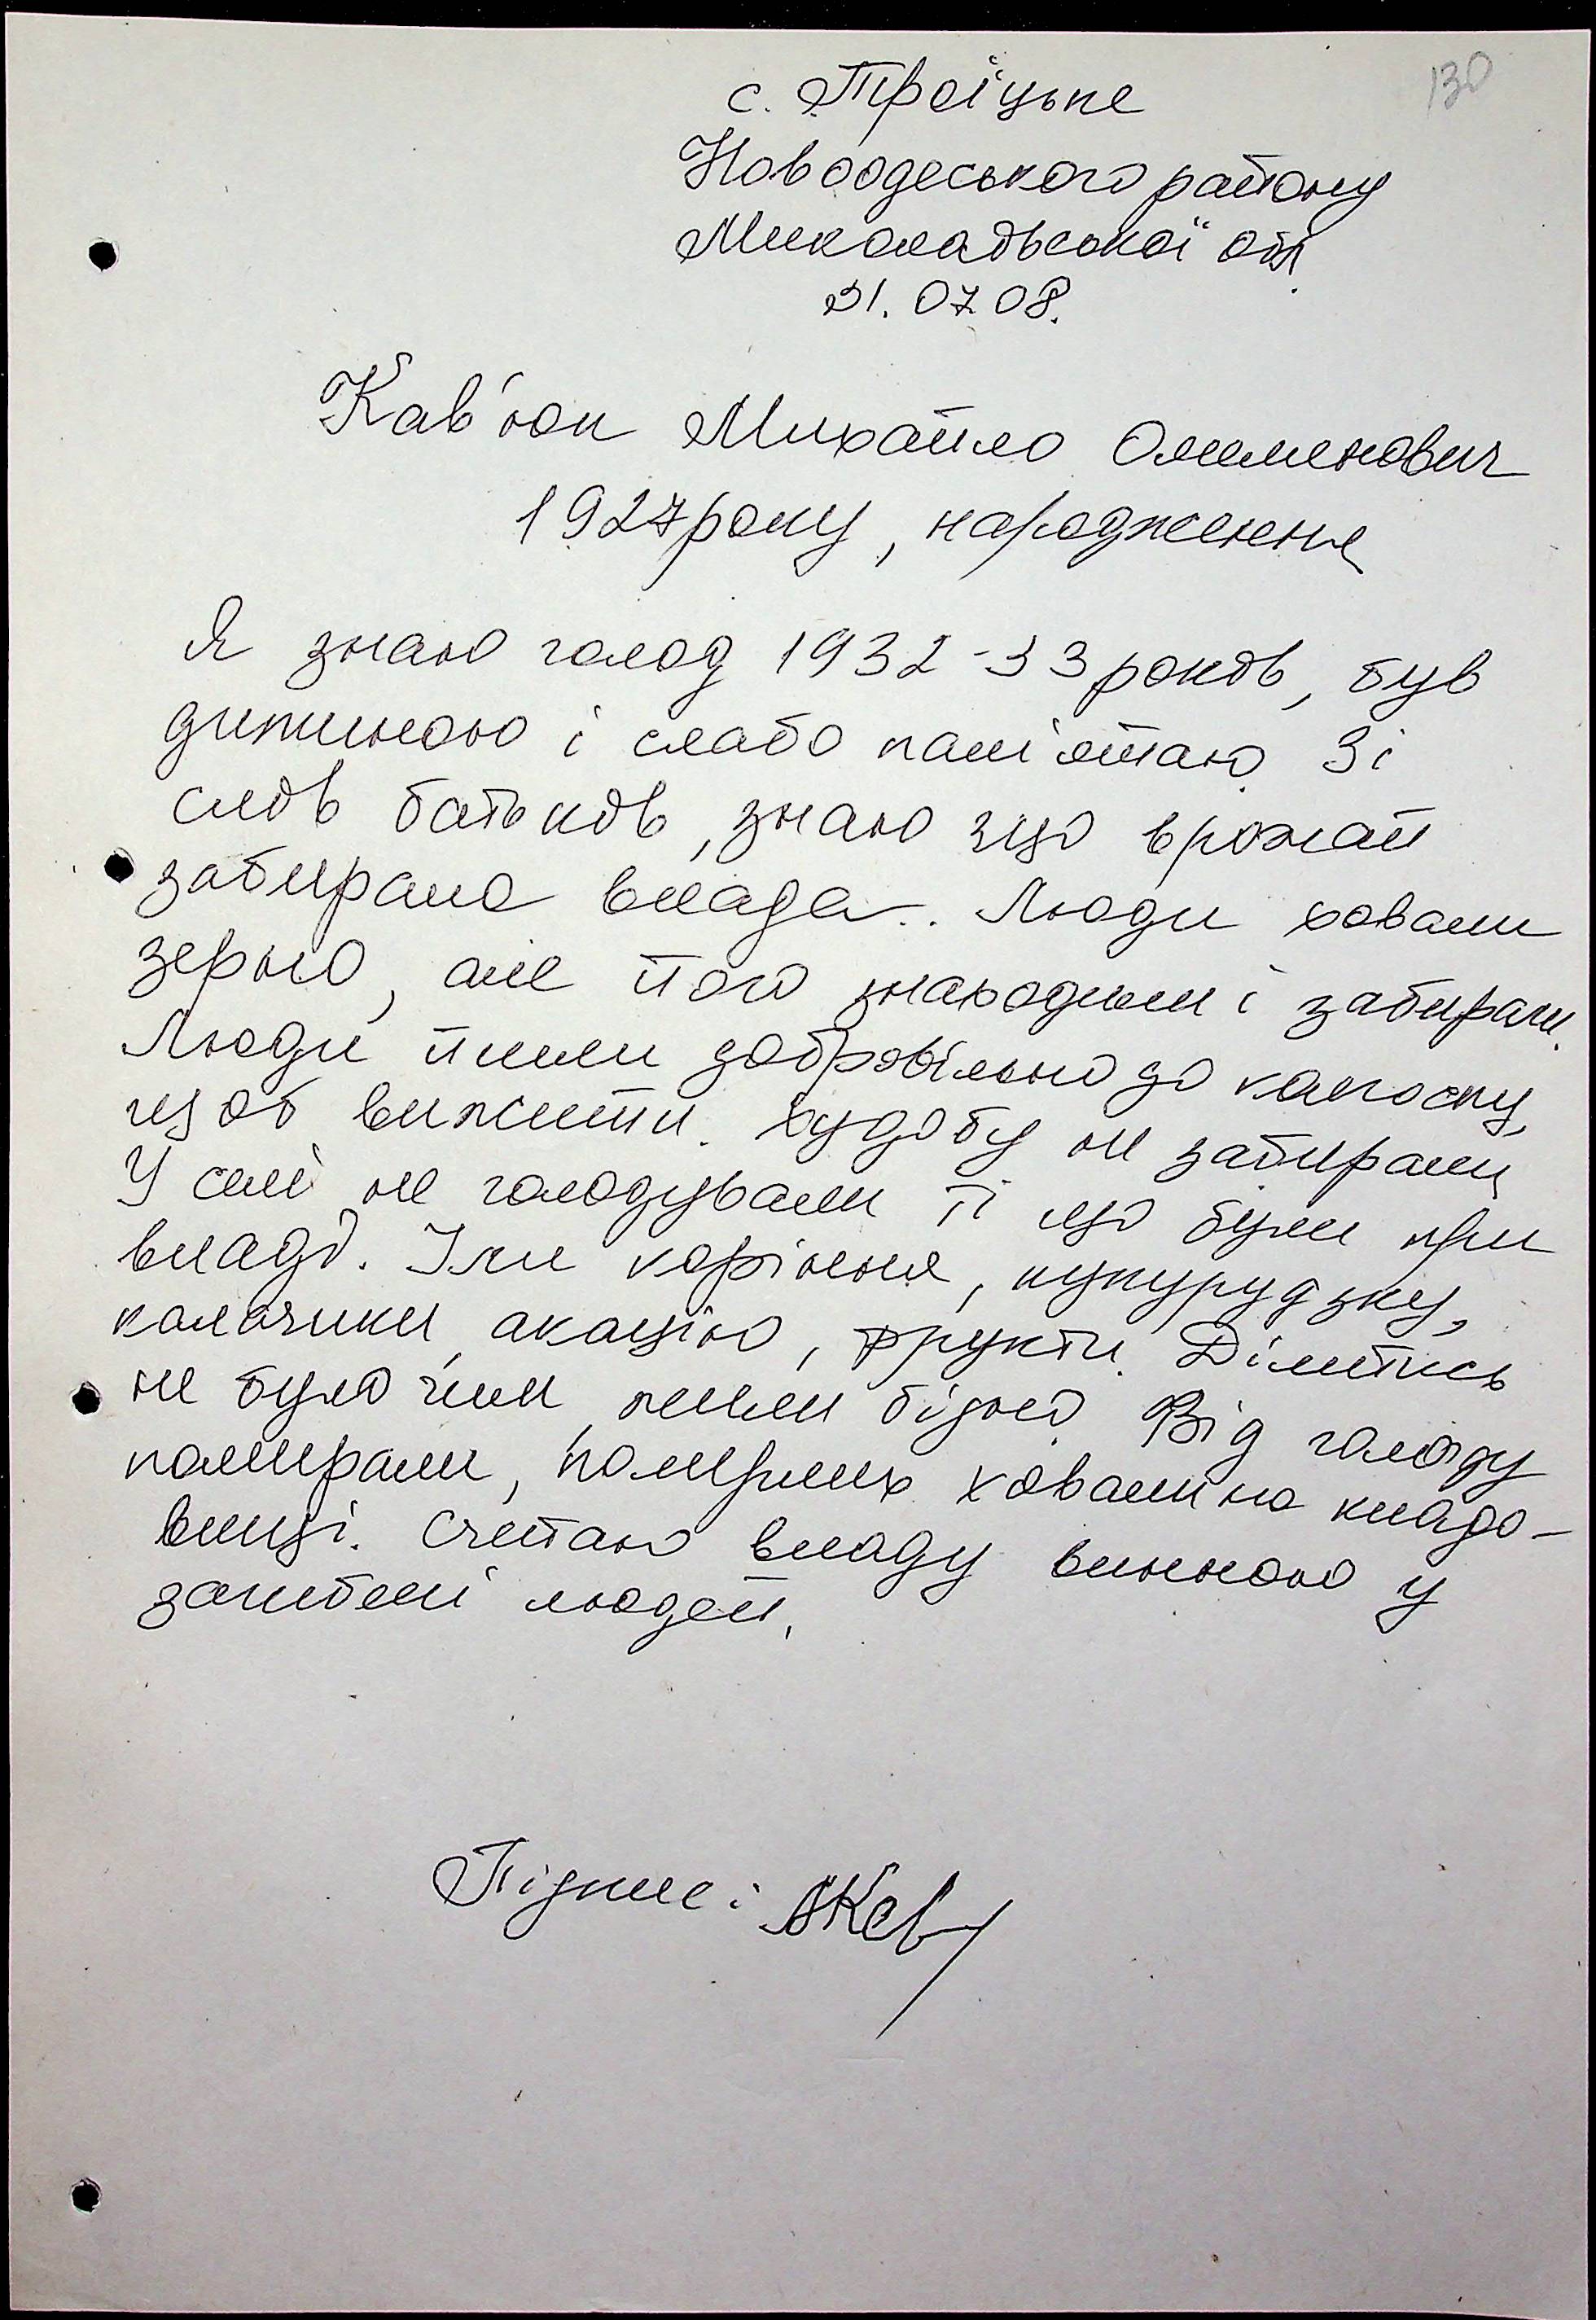 130
с. Троїцьке
Новоодеського району
Миколаївської обл.
31.07.08.
Кав'юк Михайло
1927 року, народження
Я знаю голод 1932-33 років, був
дитиною і слабо пам'ятаю. Зі
слів батьків, знаю що врожай
забирала влада. Люди ховали
зерно, але його знаходили і забирали.
Люди йшли добровільно до колгоспу,
щоб вижити. Худобу не забирали
У селі не голодували ті що були при
владі. Їли коріння, кукурудзку,
калачики, акацію, фрукти. Ділитись
не було чим, жили бідно. Від голоду
помирали, померлих ховали на кладо-
вищі. Счетаю владу винною у
загибелі людей.
Підпис: